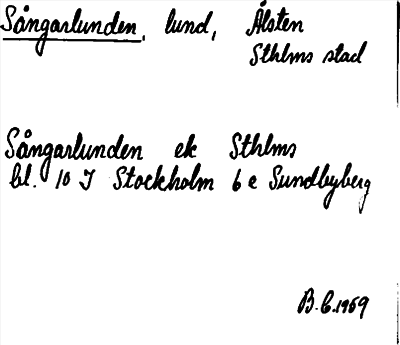 Sångarlunden, lund, Ålsten
Sthlms stad
Sångarlunden ek Sthlms
bl. 10 I Stockholm 6 e Sundbyberg
B.C. 1969